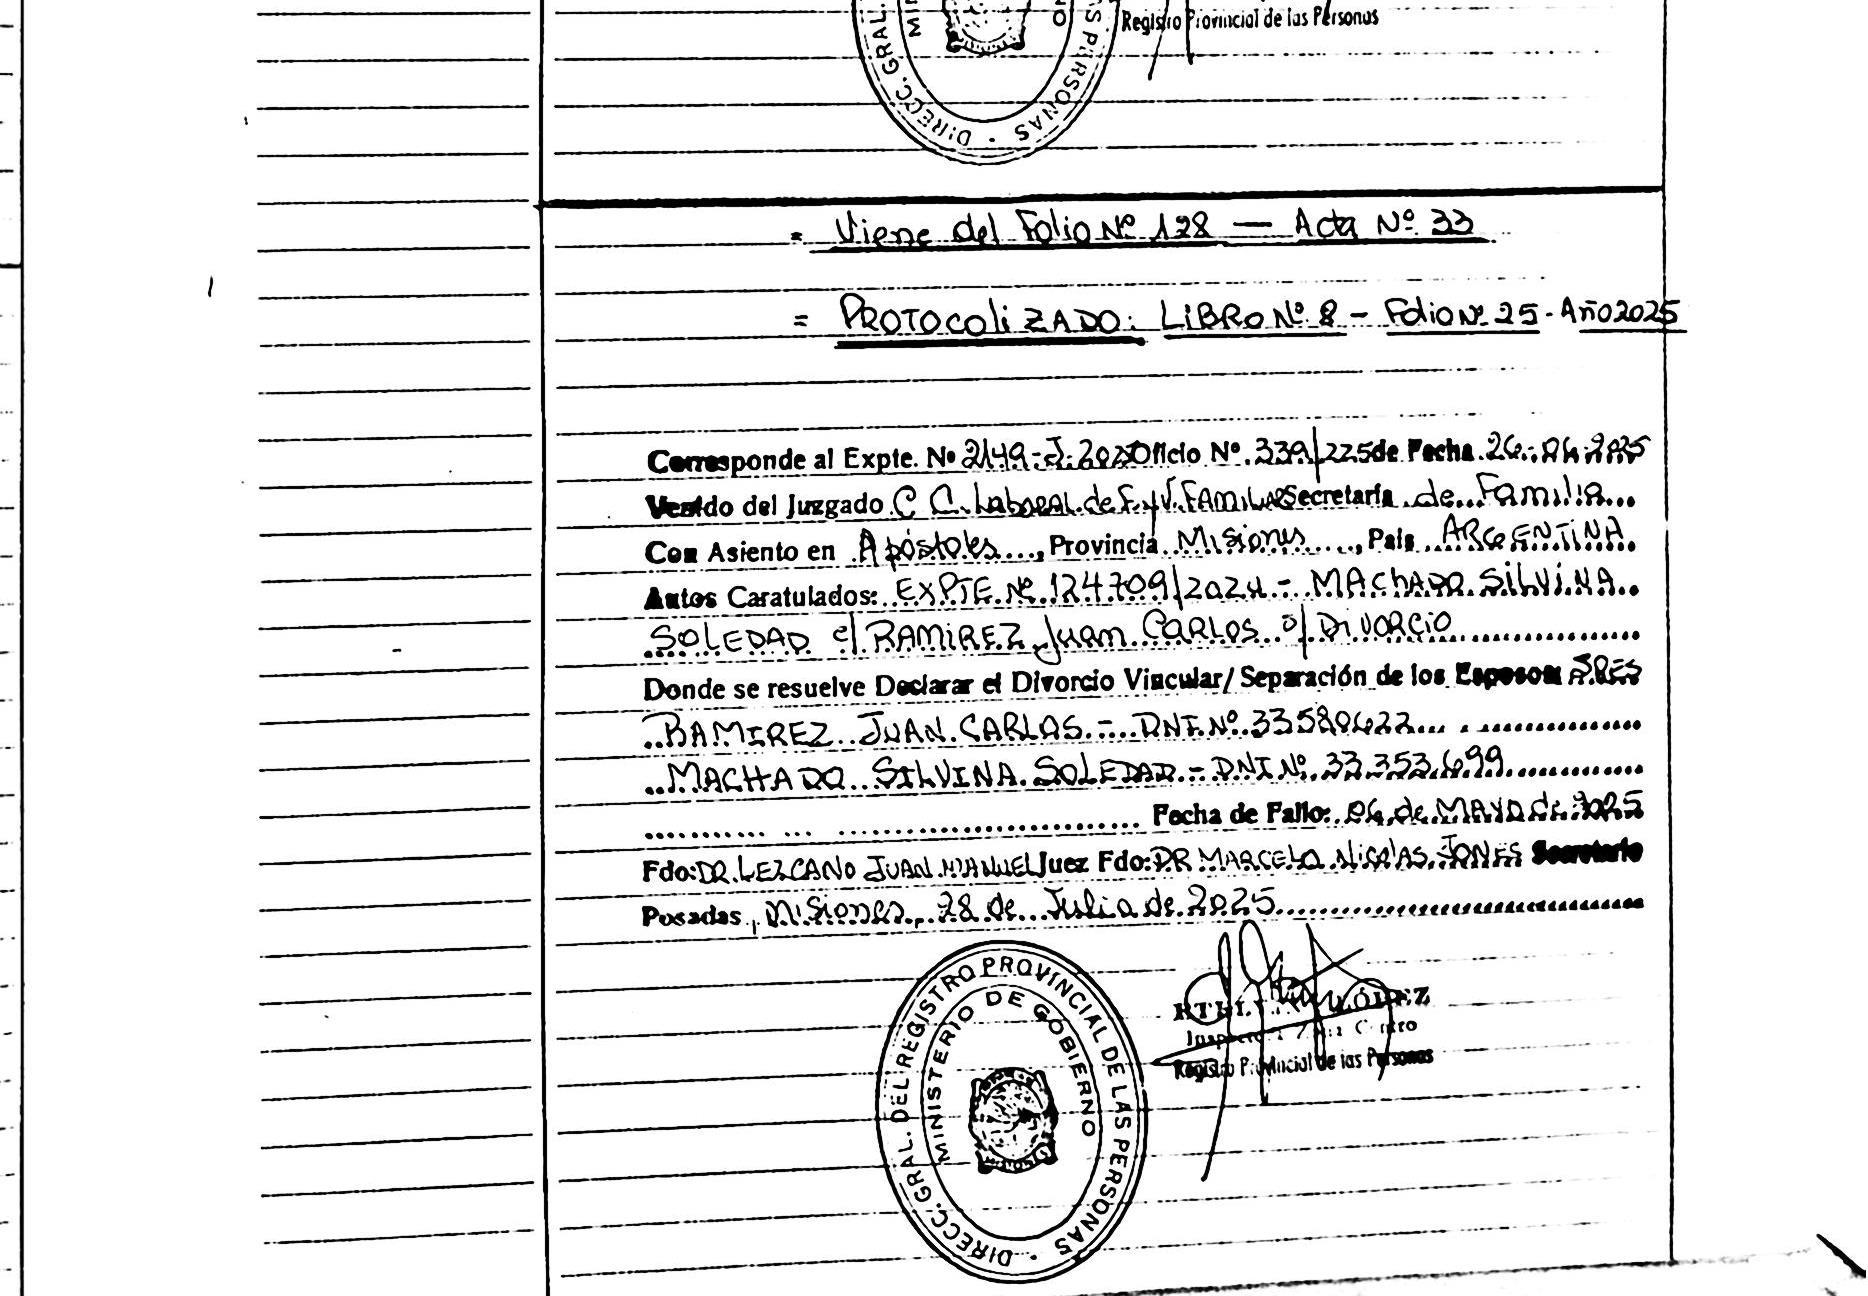 DIRECC. GRAL. PERSONAS
Registro Provincial de las Personas
= Viene del Folio Nº 128 — Acta Nº 33
= PROTOCOLIZADO: LIBRO Nº 8 - Folio Nº 25 - Año 2025
Corresponde al Expte. Nº 2149-J-202 Oficio Nº 339/225 de Fecha 26-06-2025
Venido del Juzgado C C. Laboral de F. y V. FAMILIAR Secretaría de Familia
Con Asiento en Apóstoles, Provincia Misiones, País ARGENTINA
Autos Caratulados: EXPTE Nº 124709/2024 - MACHADO SILVINA
SOLEDAD c/ RAMIREZ Juan CARLOS s/ DIVORCIO
Donde se resuelve Declarar el Divorcio Vincular/ Separación de los Esposos SRES
RAMIREZ JUAN CARLOS - DNI Nº 33580622
MACHADO SILVINA SOLEDAD - DNI Nº 33.353.699
Fecha de Fallo: 06 de MAYO de 2025
Fdo: DR. LEZCANO JUAN MANUEL Juez Fdo: DR MARCELO NICOLAS JONES Secretario
Posadas, Misiones, 28 de Julio de 2025
DIRECC. GRAL. DEL REGISTRO PROVINCIAL DE LAS PERSONAS
MINISTERIO DE GOBIERNO
LÓPEZ
Centro
Registro Provincial de las Personas